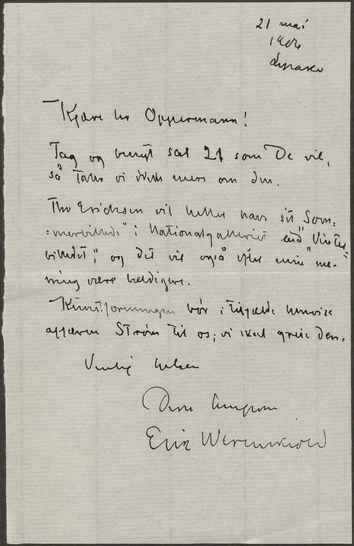 21 mai
1904
Lysaker
Kjære hr Oppermann!
Tag og benyt sat 21 som De vil,
så taler vi ikke mere om den.
Thv Erichsen vil heller have sit "Som-
merbillede" i Nationalgalleriet end "Vinter-
billedet", og det vil også efter min me-
ning være heldigere.
Kunstforeningen bør i tilfælde henvise
Strøm til os; vi skal greie den.
Venlig hilsen
Deres hengivne
Erik Werenskiold